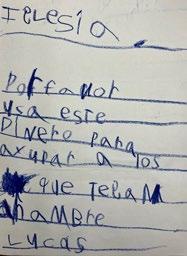 IGLESIA
PORFAVOR
USA ESTE
DINERO PARA
AYUDAR A LOS
QUE TENGAN
HAMBRE
LUCAS